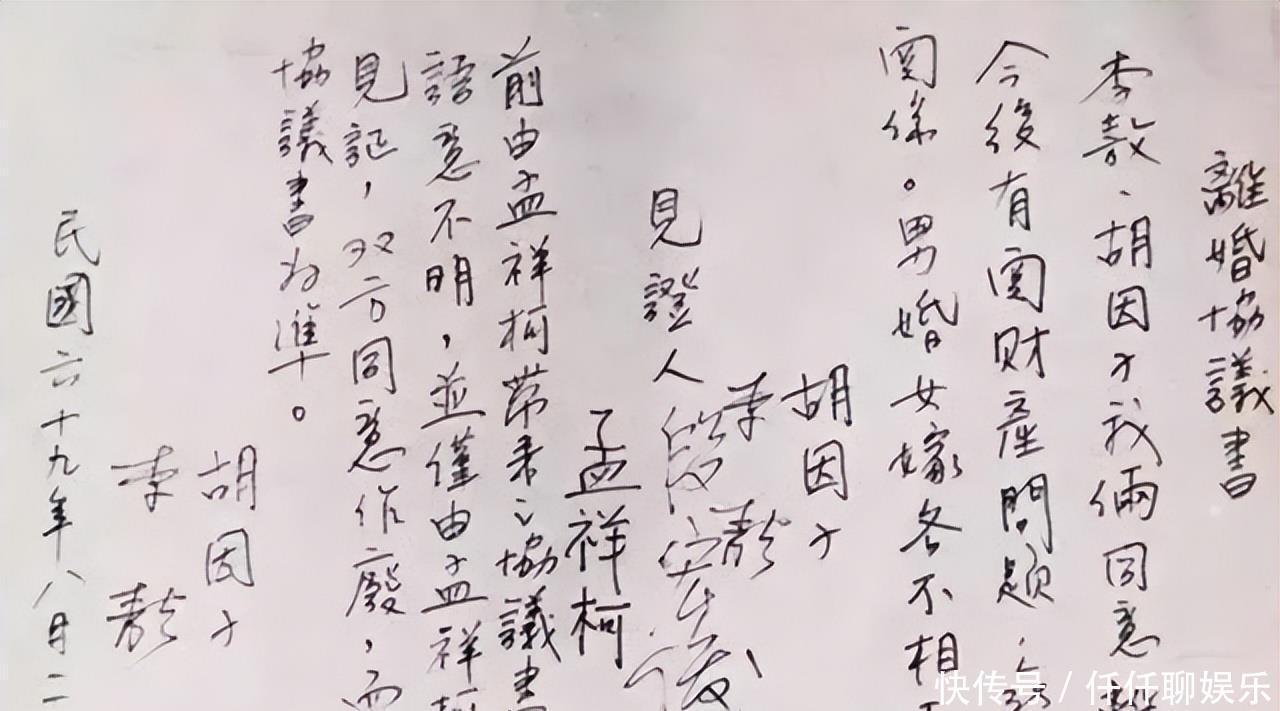 離婚協議書
李敖、胡因子我倆同意
今後有関財産問題、
関係。男婚女嫁各不相
胡因子
李敖
見證人
孟祥柯
前由孟祥柯帶来之協議書
語意不明，並僅由孟祥柯
見証，双方同意作廢，而
協議書为準。
胡因子
李敖
民國六十九年八月二
快传号/仟仟聊娱乐